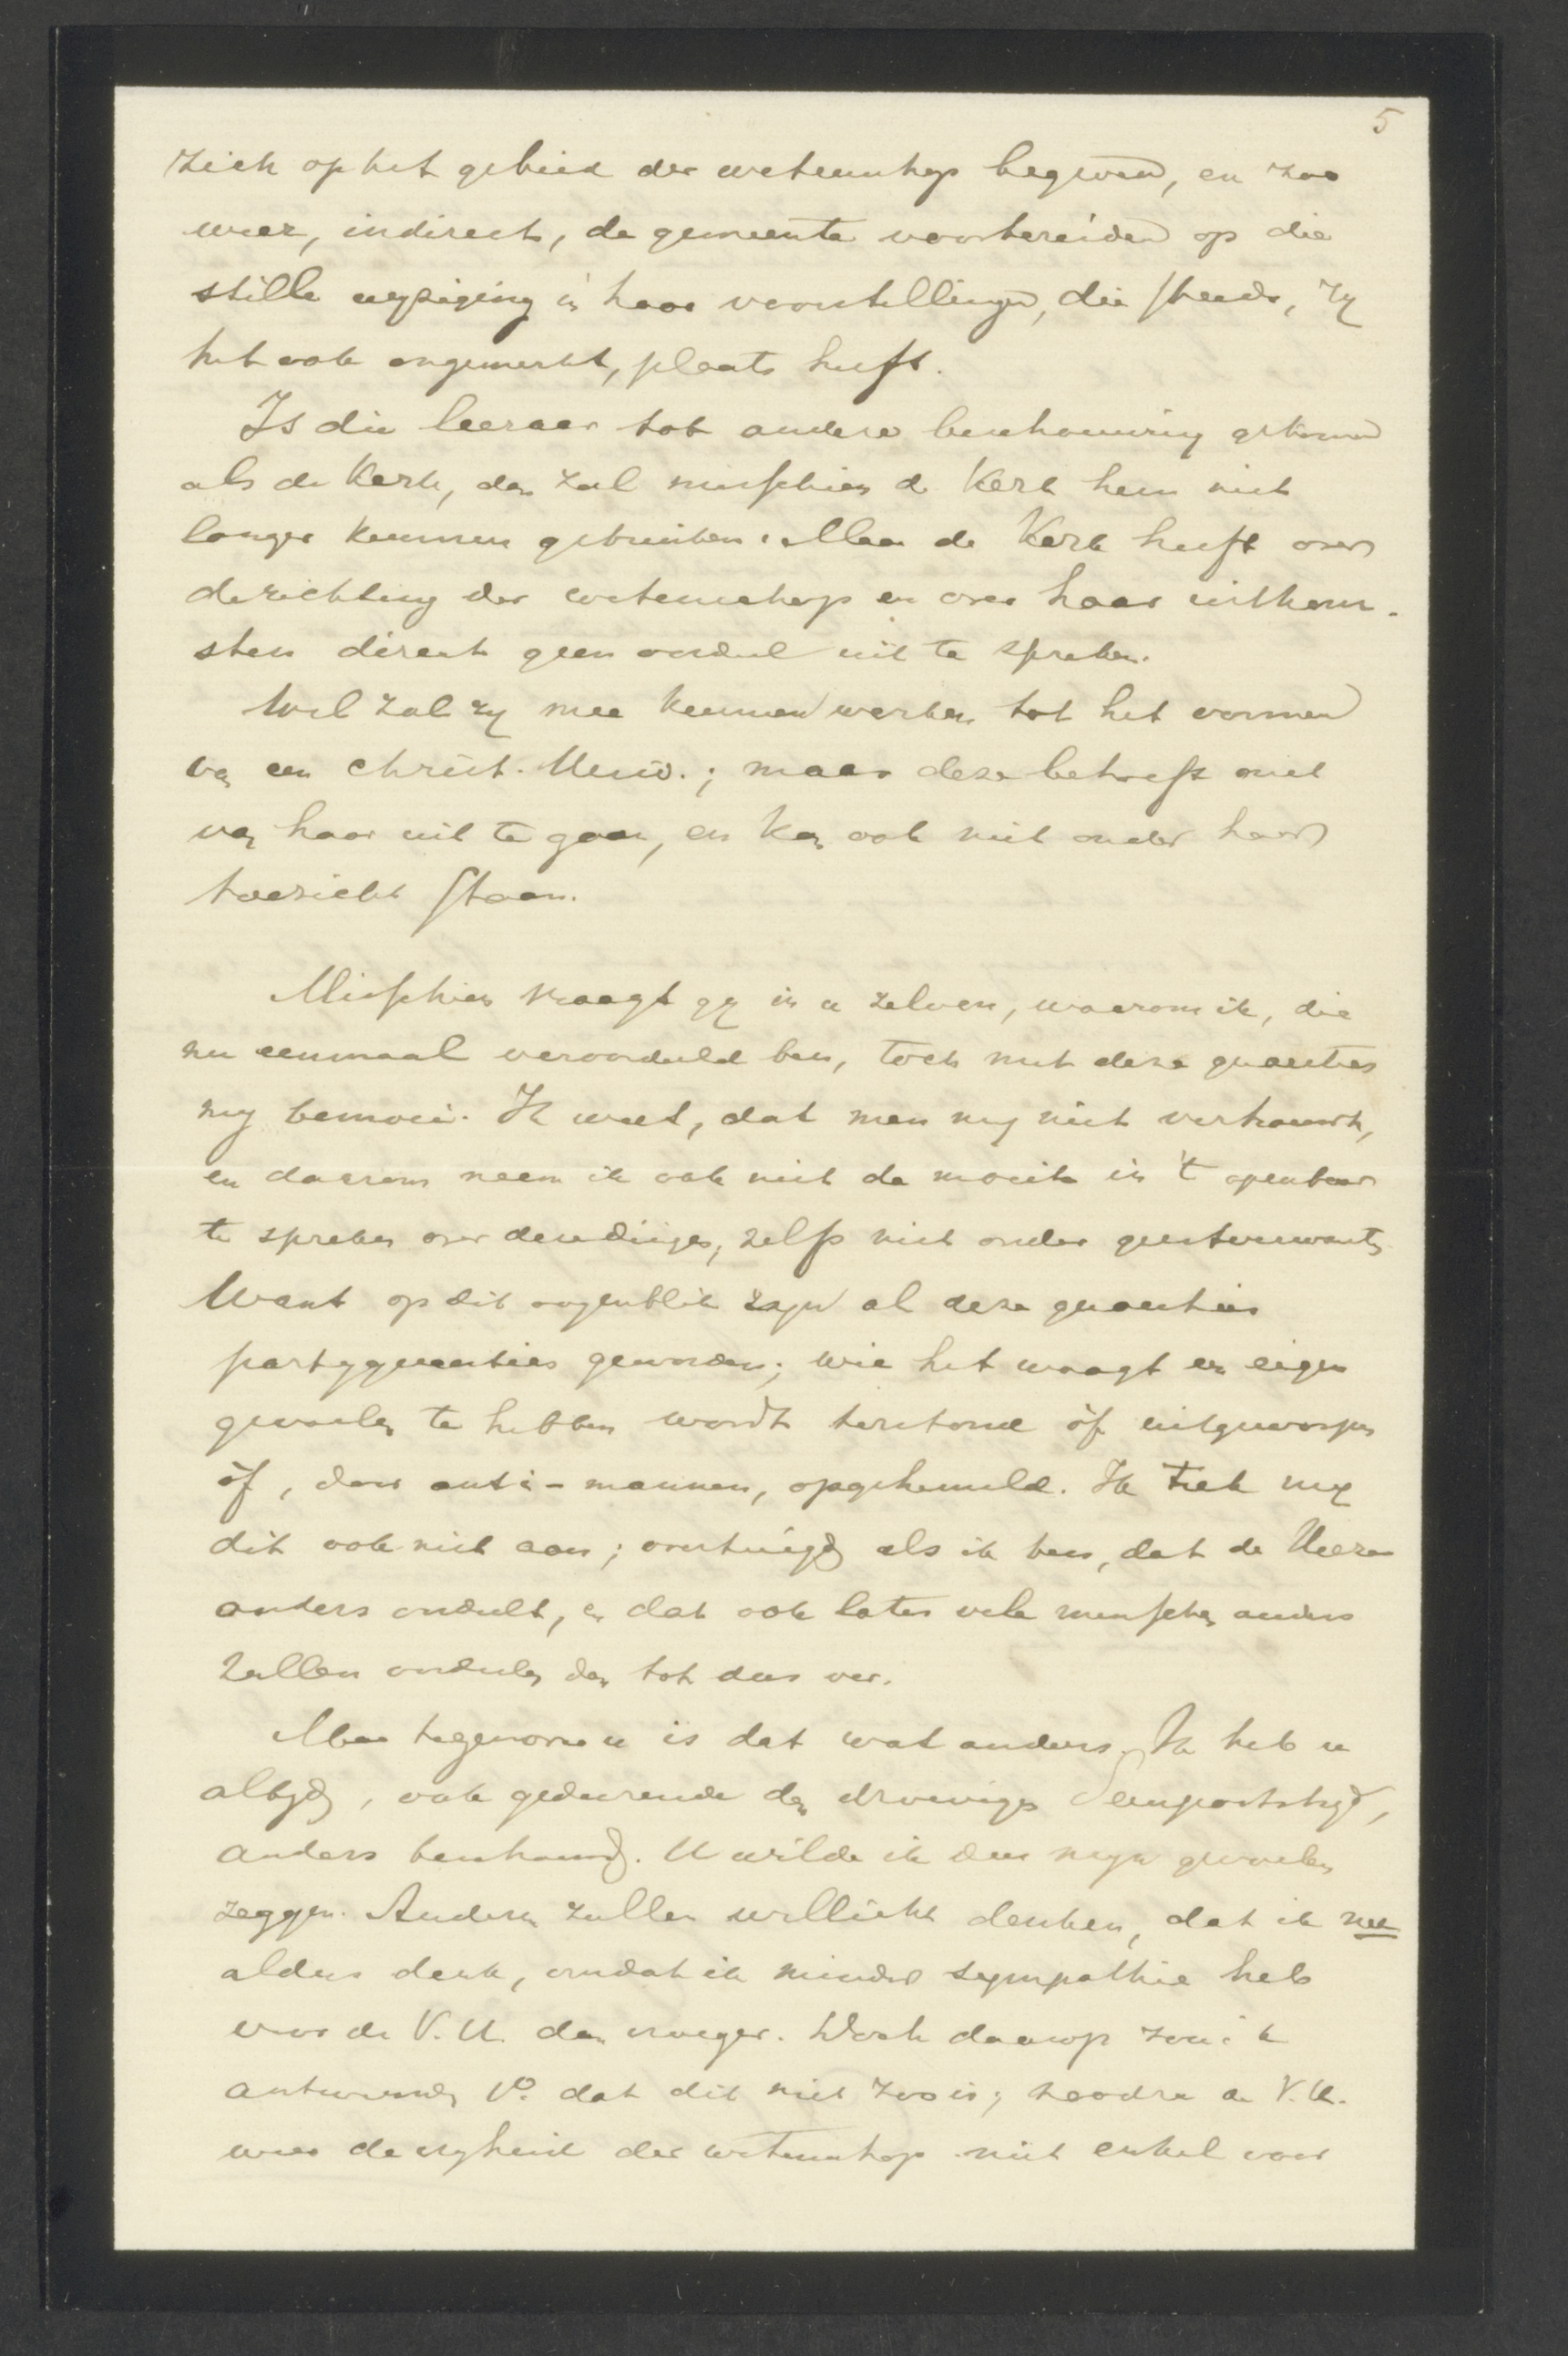 5
zich op het gebied der wetenschap begeven, en zoo
weer, indirect, de gemeente voorbereiden op die
stille wijziging in haar voorstellingen, die steeds, zij
het ook ongemerkt, plaats heeft.
Is die leeraar tot andere beschouwing gekomen
als de Kerk, dan zal misschien de Kerk hem niet
langer kunnen gebruiken. Maar de Kerk heeft over
de richting der wetenschap en over haar uitkom-
sten direct geen oordeel uit te spreken.
Wel zal zij mee kunnen werken tot het vormen
van een christ. Univ.; maar deze behoeft niet
van haar uit te gaan, en kan ook niet onder haar
toezicht staan.
Misschien vraagt gij in u zelven, waarom ik, die
nu eenmaal veroordeeld ben, toch met deze quaesties
mij bemoei. Ik weet, dat men mij niet vertrouwt,
en daarom neem ik ook niet de moeite in 't openbaar
te spreken over deze dingen, zelfs niet onder geestverwanten.
Want op dit oogenblik zijn al deze quaesties
partijquaesties geworden; wie het waagt een eigen
gevoelen te hebben wordt terstond òf uitgeworpen
òf, door anti-mannen, opgehemeld. Ik trek mij
dit ook niet aan; overtuigd als ik ben, dat de Heere
anders oordeelt, en dat ook later vele menschen anders
zullen oordeelen dan tot dus ver.
Maar tegenover u is dat wat anders. Ik heb u
altijd, ook gedurende den droevigen Seinpoststrijd,
anders beschouwd. U wilde ik dus mijn gevoelen
zeggen. Anderen zullen wellicht denken, dat ik nu
aldus denk, omdat ik minder sympathie heb
voor de V.U. dan vroeger. Doch daarop zou ik
antwoorden 1o. dat dit niet zoo is; zoodra de V.U.
weer de vrijheid der wetenschap niet enkel voor